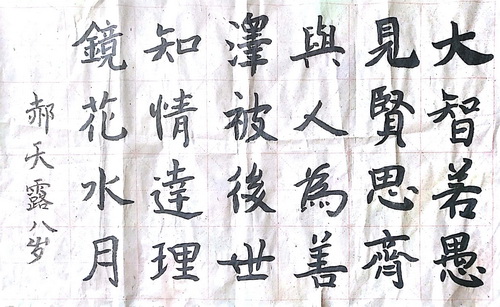 大智若愚
見賢思齊
與人為善
澤被後世
知情達理
鏡花水月
郝天露八岁